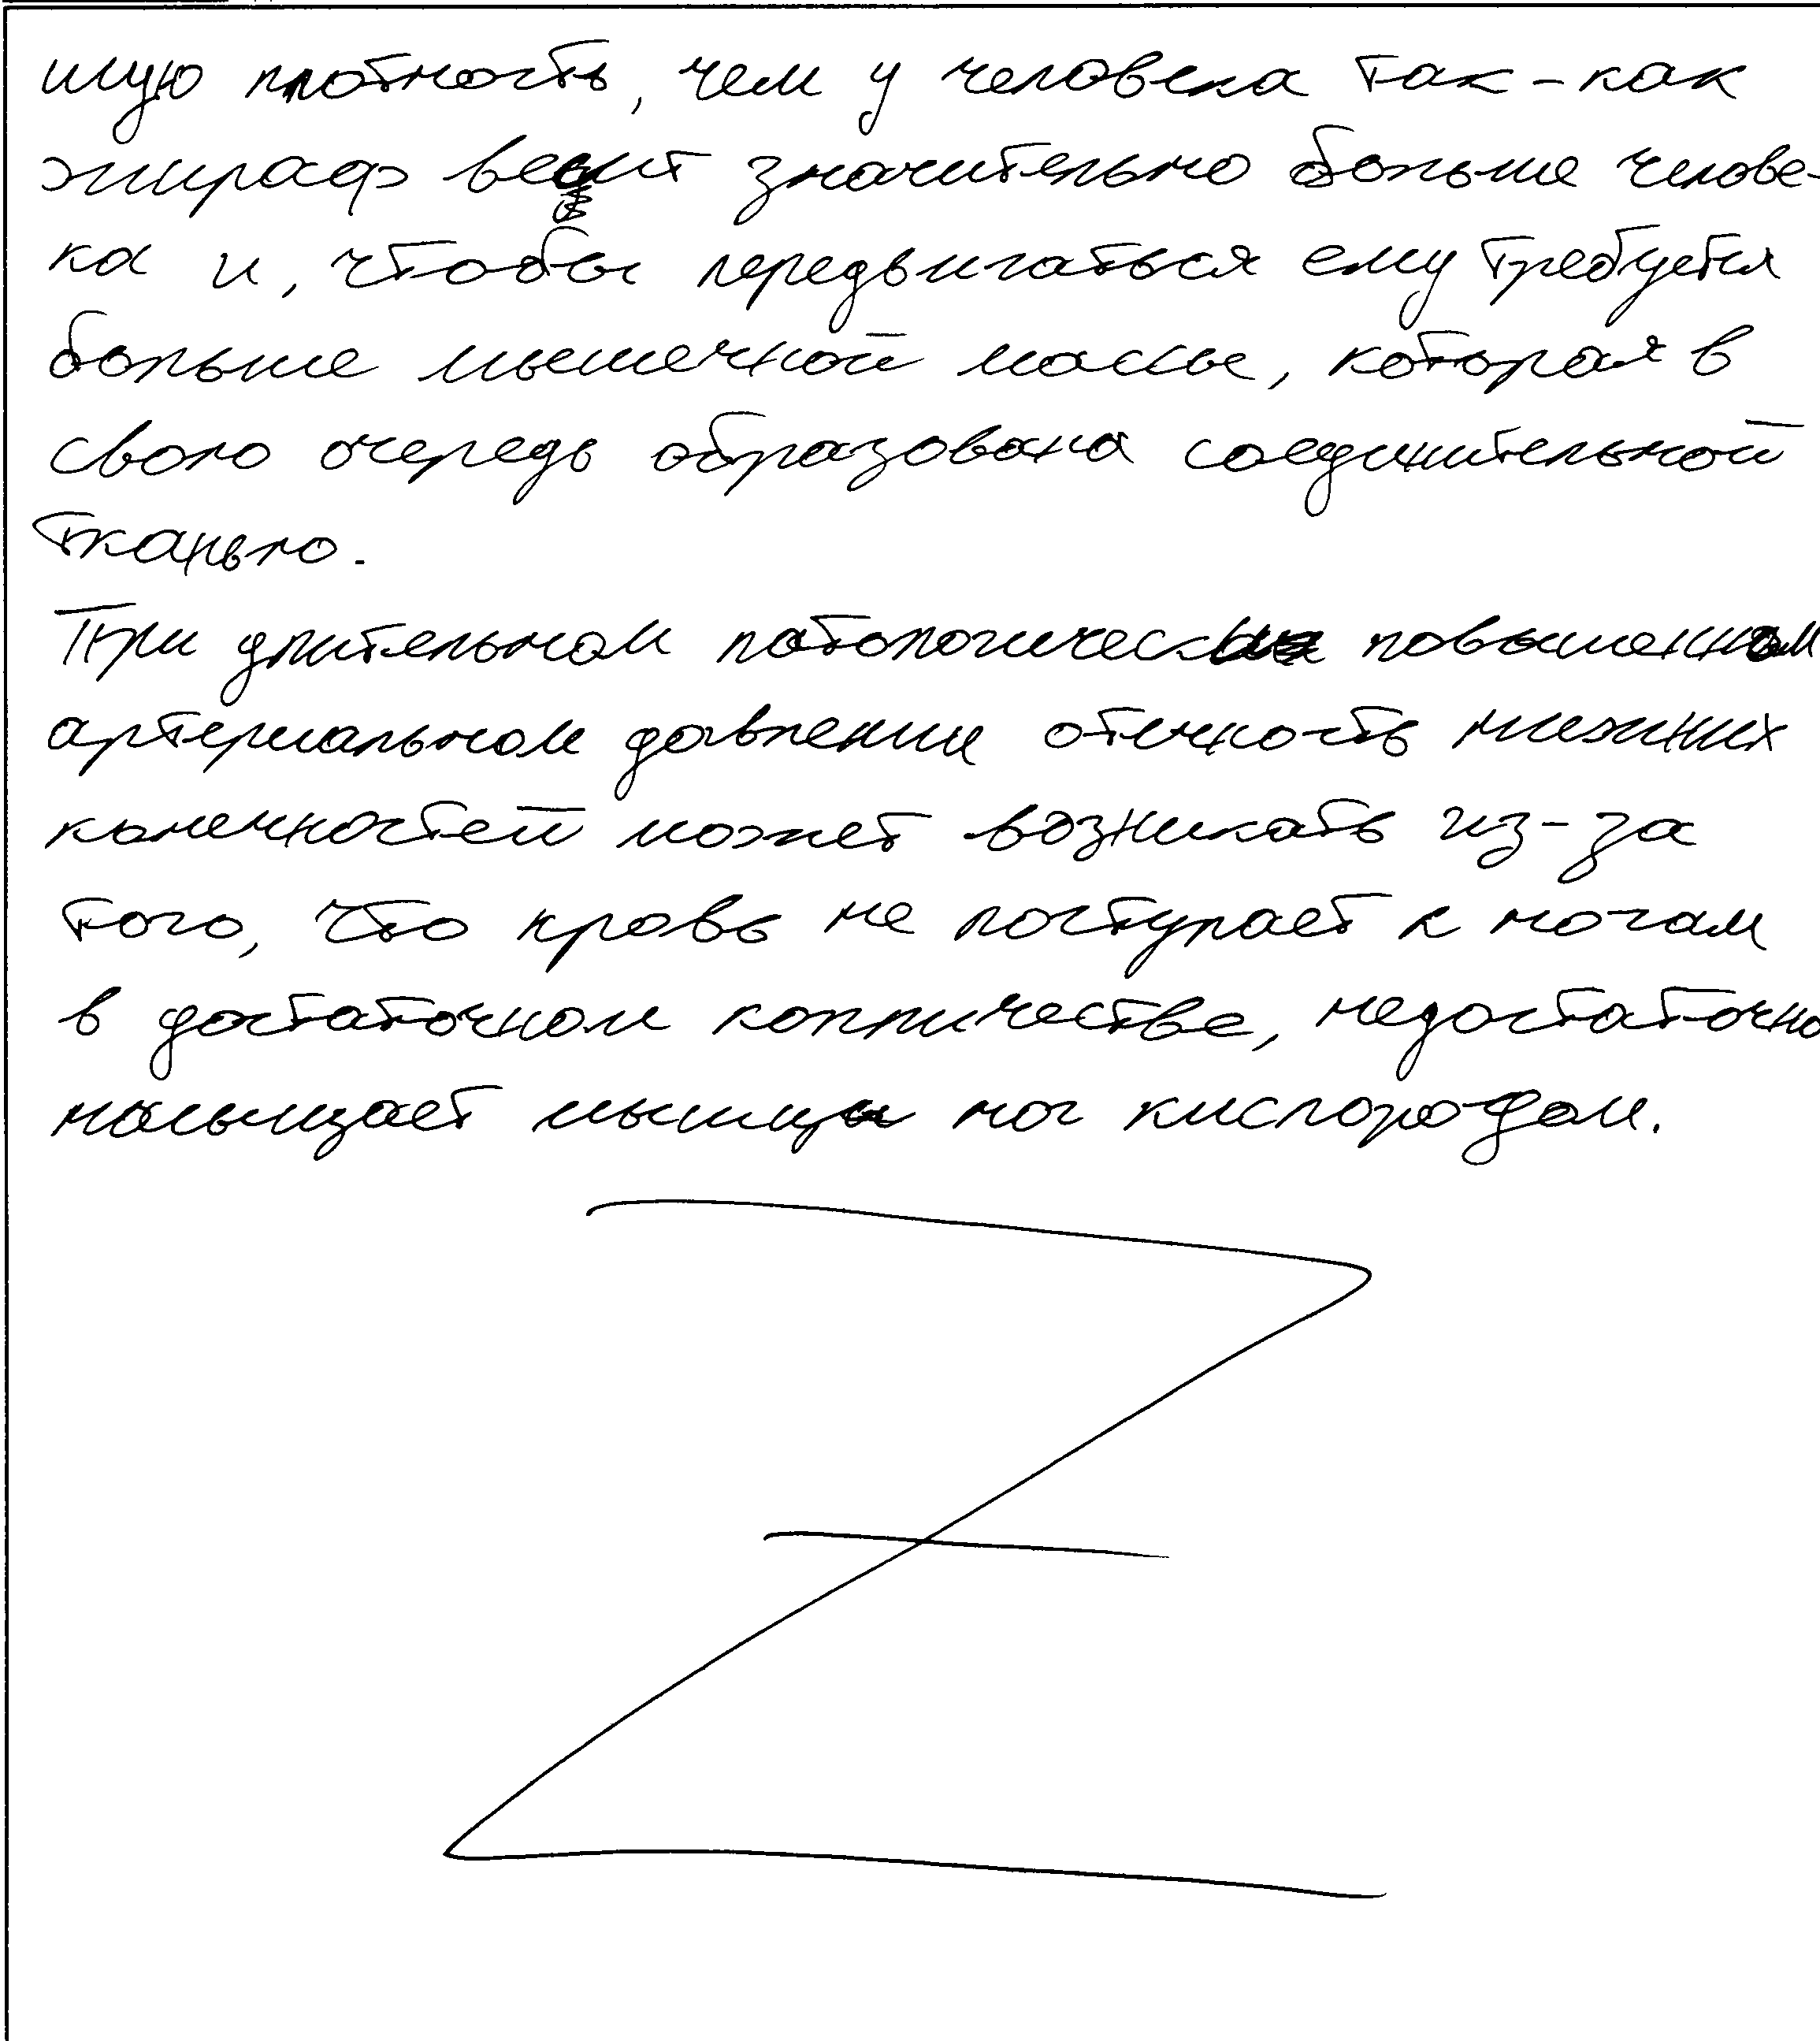 шую плотность, чем у человека так-как
жираф весит значительно больше челове-
ка и, чтобы передвигаться ему требуется
больше мышечной массы, которая в
свою очередь образована соединительной
тканью.
При длительном патологически повышенном
артериальном давлении отечность нижних
конечностей может возникать из-за
того, что кровь не поступает к ногам
в достаточном колличестве, недостаточно
насыщает мышцы ног кислородом.